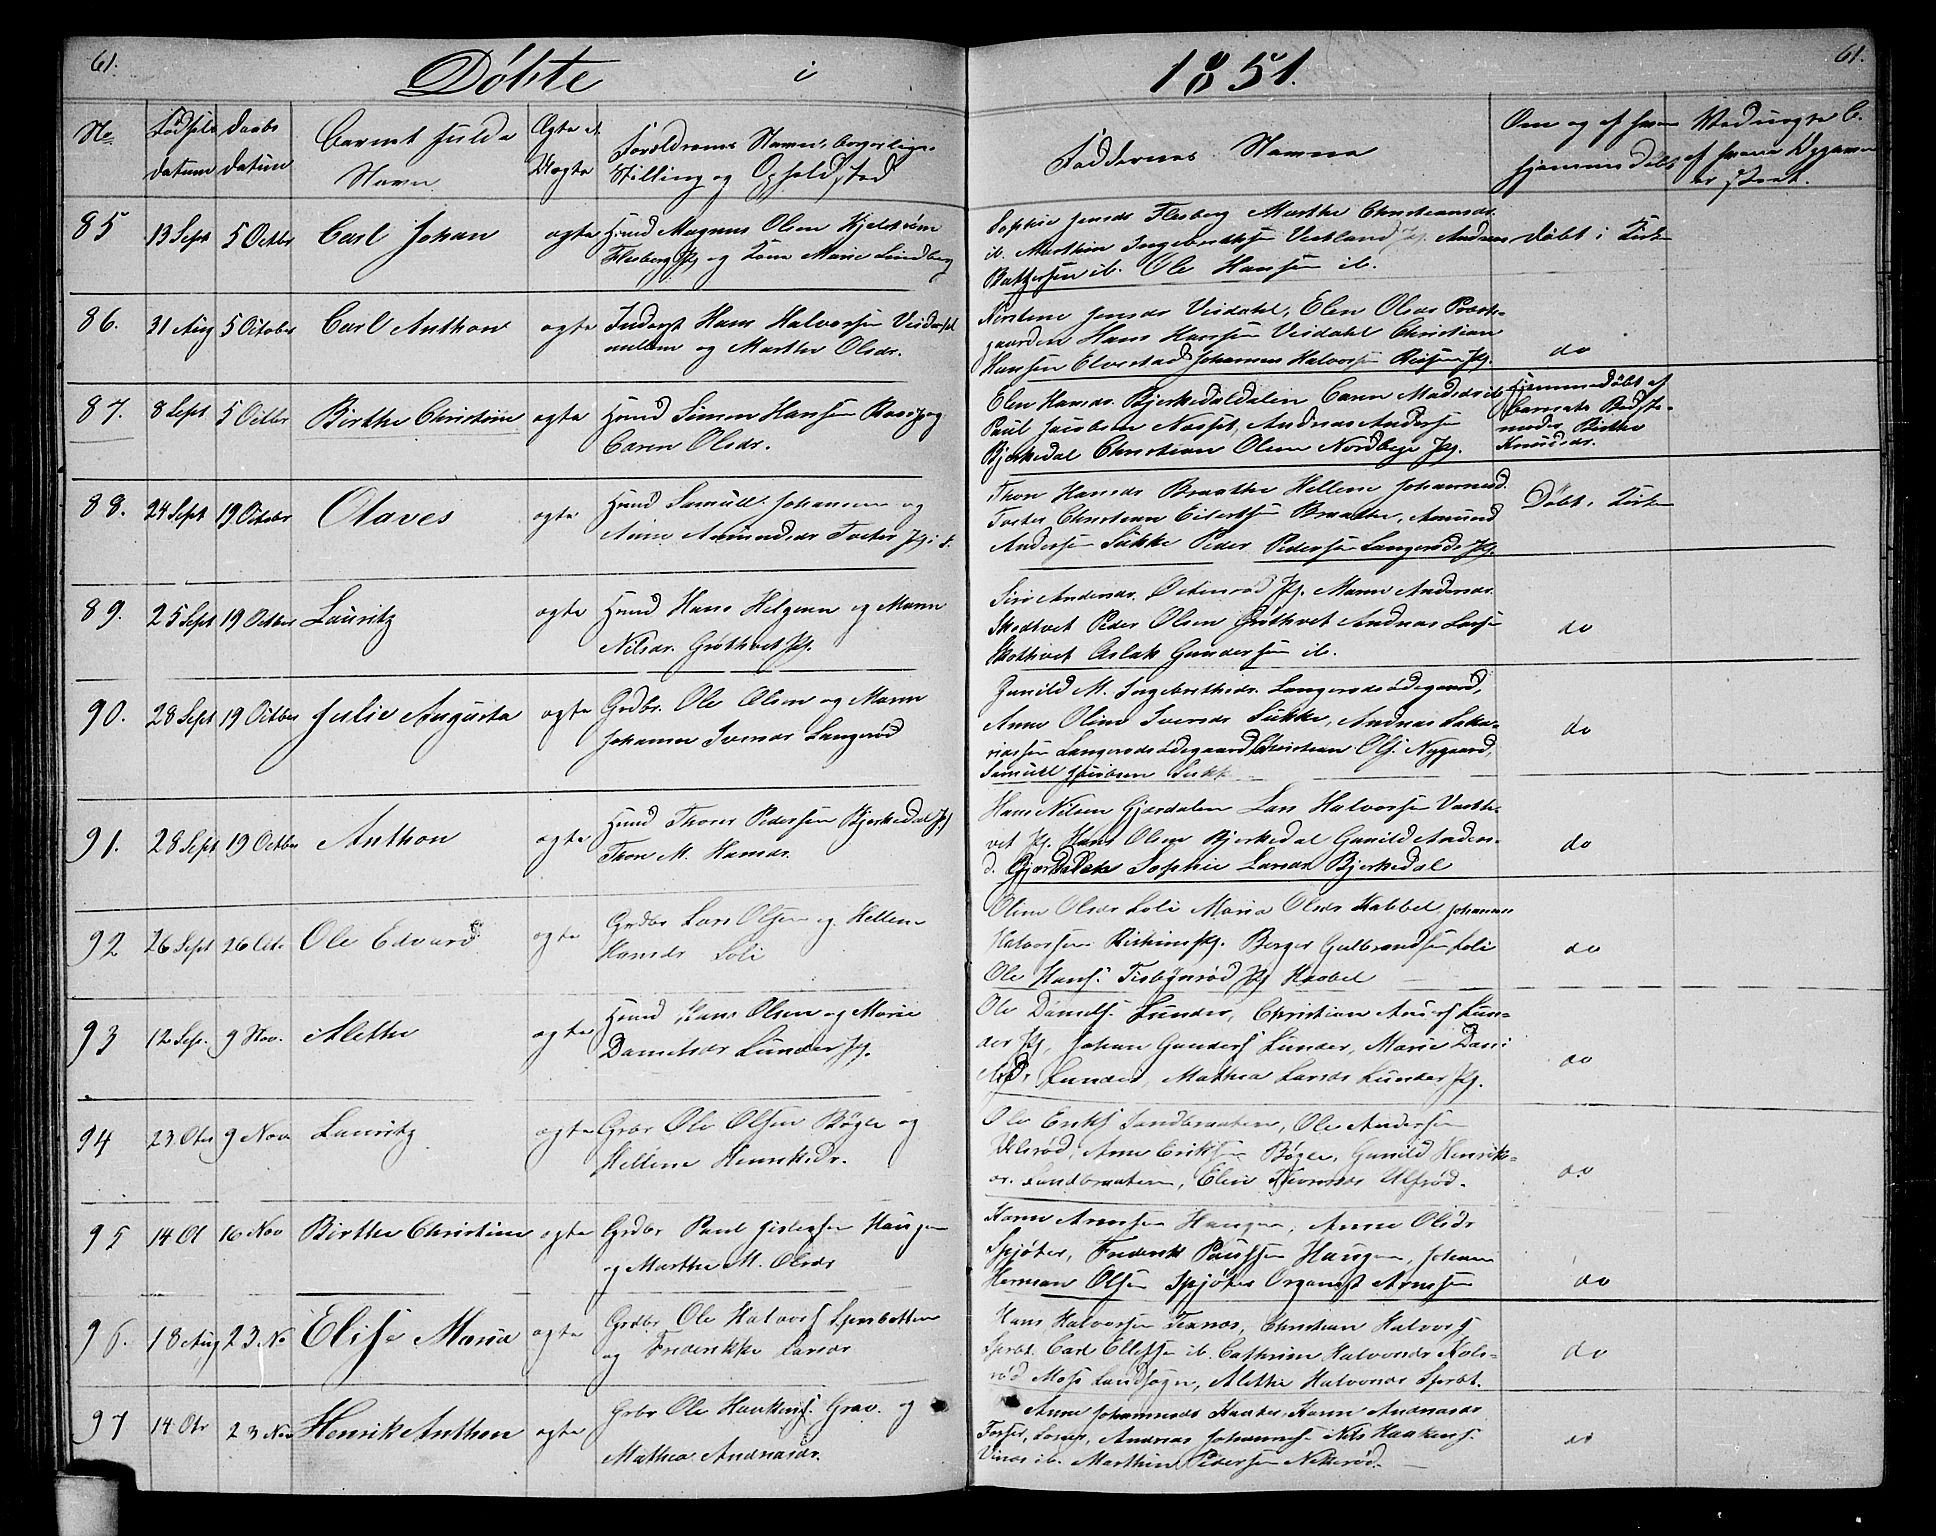 61.
Døbte i 1851.
61.
No
Fødsels datum
Daabs datum
Barnets fulde Navn
Ægte el. Uægte
Forældrenes Navne, borgerlige Stilling og Opholdsted
Faddernes Navne
Om og af hvem hjemmedøbt
85 13 Sept 5 Octbr Carl Johan ægte
Huusmd Magnus Olsen Kjelstrøm
Flesberg Pg og Lone Marie Lundberg
Sophie Jensdr Flesberg Marthe Christiansdr
ib. Marthin Ingebrethsen Vestland Pg. Andreas
ib. Ole Hansen ib.
Døbt i Kirk
86. 31 Aug 5 October Carl Anthon ægte
Inderst Hans Halvorsen Veidahl
mellem og Marthe Olsdr.
Jensdr Veidahl, Elen Olsdr Præste-
gaarden Hans Hansen Veidahl Christian
Hansen Elvestad Johannes Halvorsen Pg.
do
87. 8 Sept 5 Octbr Birthe Christine ægte
Huusmd Simen Hansen og
Caren Olsdr.
Elen Hansdr. Bjerkedaldalen Caren Madsdr ib
Paul Jacobsen Andreas Andersen
Bjerkedal Christian Olsen Nordbye Pg.
Hjemmedøbt af
Barnets Bedste-
moder Birthe
Knudsdr.
88. 24 Sept 19 Octobr Olaves ægte
Huusmd Samuel Johansen og
Anne Amundsdr Foster Pg
Thon Hansdr Braathe Hellene Johannesd.
Foster Christian Eilertsen Braathe, Amund
Andersen Sukke Peder Pedersen Langerød Pg.
Døbt i Kirken
89. 25 Sept 19 Octber Lauritz ægte
Huusmd Hans Helgesen og Maren
Nilsdr. Grøthvet Pg.
Siri Andersdr. Østenrød Pg. Maren Andersdr.
Skottvet Peder Olsen Grøthvet Andreas Larsen
Skottvet Aslak Gundersen ib.
do
90. 28 Sept 19 Octber Julie Augusta ægte
Grdbr. Ole Olsen og Maren
Johanne Iversdr Langerød
Gunild M. Ingebrethsdr. Langerødsødegaard,
Anne Oline Iversdr Sukke, Andreas Saka-
riassen Langerødsødegaard, Christian Ols. Nygaard,
Samuel Jacobsen Sukke
do
91. 28 Sept 19 Octber Anthon ægte
Huusmd Thorer Pedersen Bjerkedal Pg
Thon M. Hansdr.
Hans Nilsen Gjerdalen Lars Halvorsen
vet Pg. Hans Olsen Bjerkedal Gunild Anders-
d. Sophie Larsdr Bjerkedal
do
92 26 Sept 26 Octr Ole Edvard ægte
Grdbr Lars Olsen og Hellene
Hansdr Loli
Oline Olsdr Loli Maria Olsdr Kabbel, Johannes
Halvorsen Pg. Borger Gulbrandsen Loli
Ole Hans. Pg Kabbel
do
93 12 Sep. 9 Nov. Alethe ægte
Huusmd Hans Olsen og Marie
Danielsdr Lunder Pg.
Ole Daniels. Lunder, Christian Lun-
der Pg, Johan Gunders Lunder, Marie Dani
elsd. Lunder, Mathea Larsdr Lunder Pg.
do
94 23 Otr 9 Nov Lauritz ægte
Grbr Ole Olsen Bøgle og
Hellene Henriksdr.
Ole Eriks Sandbraaten, Ole Andersen
Ulsrød, Arne Eriksen Bøgle, Gunild Henriks-
dr. Sandbraaten, Elin Ulfrød.
do
95 14 Ot 16 Nov Birthe Christine ægte
Grdbr Paul Gislesen Haugen
og Marthe M. Olsdr
Karen Arnesen Haugen, Anne Olsdr
Spjøter, Frederik Paulsen Haugen, Johan
Herman Olsen Spjøter Organist Arnesen
do
96. 18 Aug 23 No Elise Maria ægte
Grdbr Ole Halvors Sperrebotten
og Frederikke Larsdr
Hans Halvorsen Texnæs, Christian Halvors
Sperbt. Carl Ellefsen ib. Cathrine Halvorsdr Kols-
rød Moss Landsogn, Alethe Halvorsdr Sperbt.
do
97 14 Otr 23 Nov Henrik Anthon ægte
Grbr Ole Haakens. Grav. og
Mathea Andreasdr.
Anne Johannesdr Karen Andreasdr
Andreas Johannes Nils Haakens.
ib. Marthin Pedersen
do